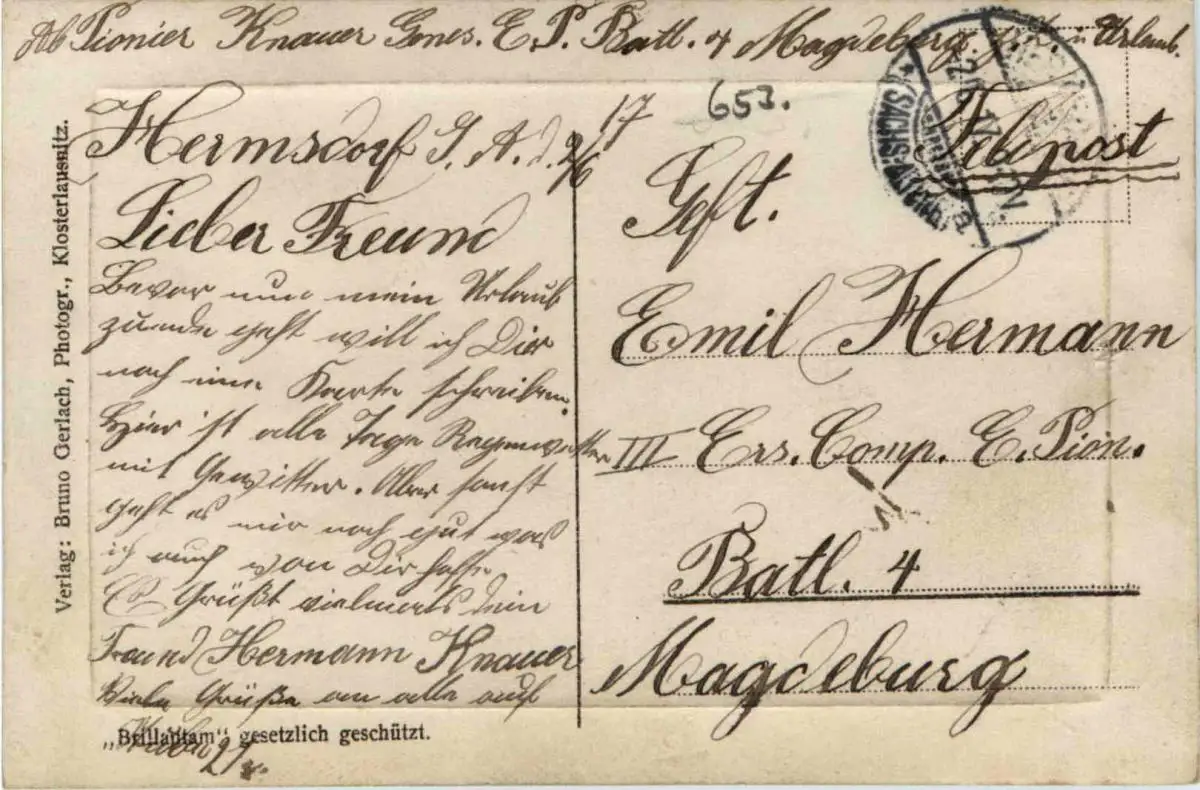 Ab Pionier Knauer Genes. E. P. Batl. 4 Magdeburg Urlaub.
653.
Feldpost
Hermsdorf S. A. d. 2/6 17
Lieber Freund
Bevor nun mein Urlaub
zuende geht will ich Dir
noch eine Karte schreiben.
Hier ist alle Tage Regenwetter
mit Gewitter. Aber sonst
geht es mir noch gut was
ich auch von Dir hoffe
Es Grüßt vielmals dein
Freund Hermann Knauer
Viele Grüße an alle auf
Stube 27.
Geft.
Emil Hermann
III Ers. Comp. E. Pion.
Batl. 4
Magdeburg
Verlag: Bruno Gerlach, Photogr., Klosterlausnitz.
„Brillantam“ gesetzlich geschützt.